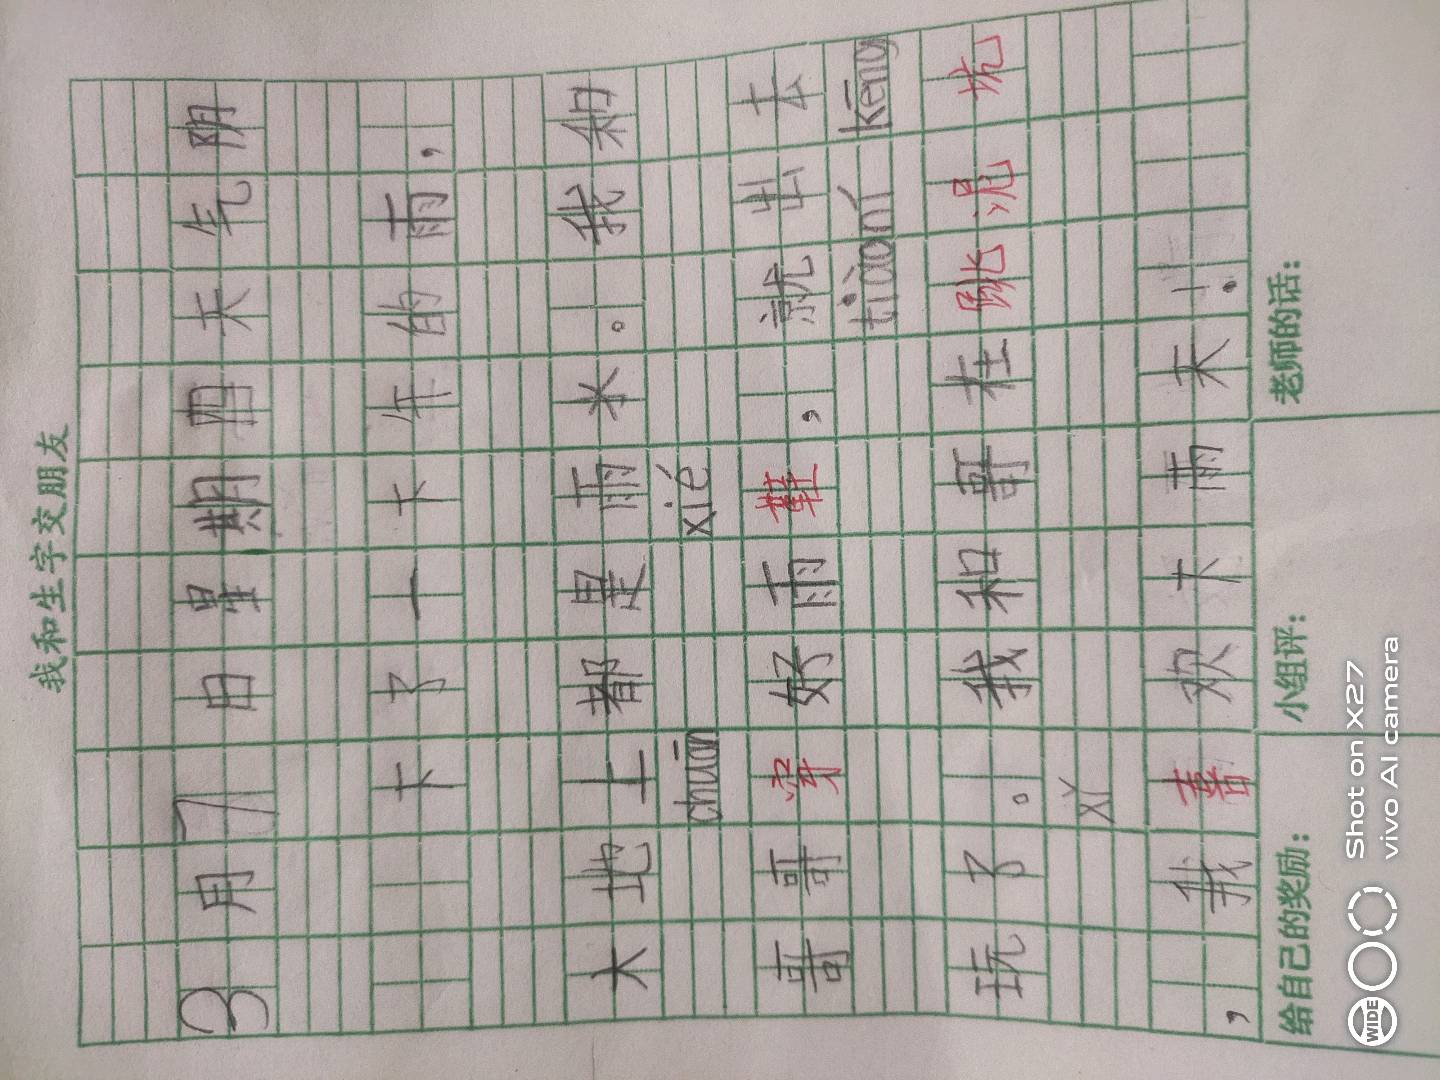 我和生字交朋友
3月7日星期四天气阴
下了一下午的雨，
大地上都是雨水。我和
chuān xié
哥哥穿好雨鞋，就出去
tiàoní kēng
玩了。我和哥在跳泥坑
xǐ
，我喜欢下雨天！
给自己的奖励： 小组评： 老师的话：
Shot on X27
vivo AI camera
WIDE